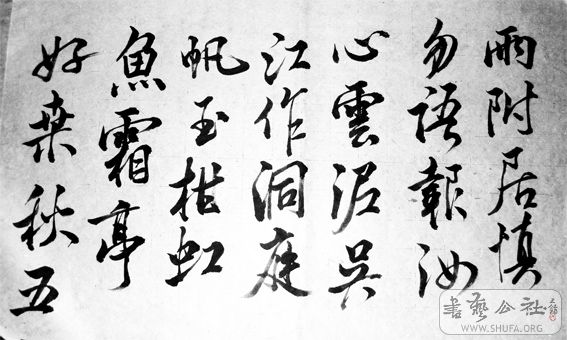 雨附居慎
勿語報汝
心雲泥吳
江作洞庭
帆玉柑虹
魚霜亭
好桑秋五
書藝公社
WWW.SHUFA.ORG